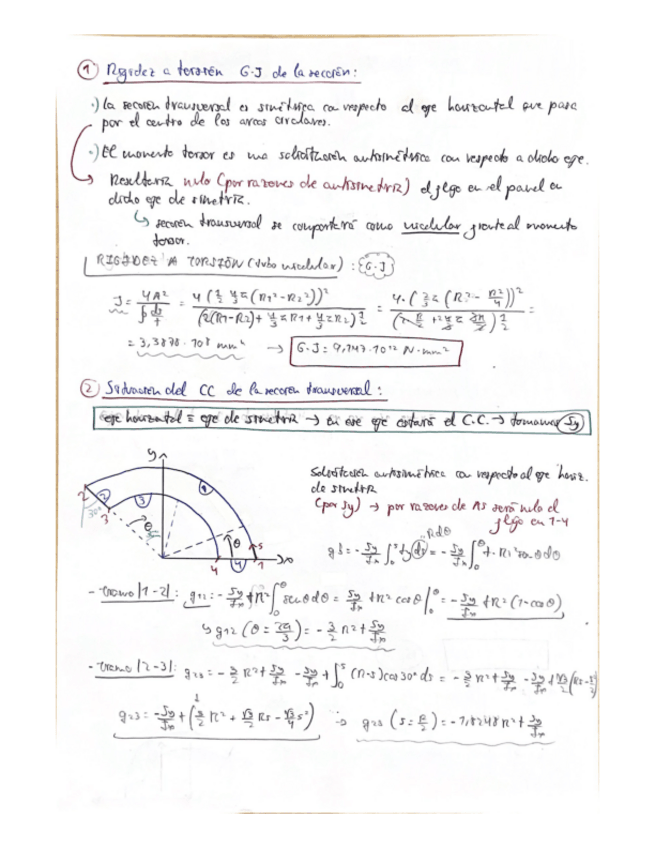 ① Rigidez a torsión G·J de la sección:
·) La sección transversal es simétrica con respecto al eje horizontal que pasa
por el centro de los arcos circulares.
·) El momento torsor es una solicitación antisimétrica con respecto a dicho eje.
Resultaría nulo (por razones de antisimetría) el flujo en el panel en
dicho eje de simetría.
↳ sección transversal se comportará como unicelular frente al momento
torsor.
RIGIDEZ A TORSIÓN (tubo unicelular): G·J
J = 4A² / ∮ ds/t = 4(½ 4/3 π (R1² - R2²))² / (2(R1-R2) + 4/3 π R1 + 4/3 π R2) 1/t = 4·(2/3 π (R² - R²/4))² =
= 3,3878·10⁸ mm⁴ → G·J = 9,147·10¹² N·mm²
② Situación del CC de la sección transversal:
eje horizontal ≡ eje de simetría → en ese eje estará el C.C. → tomamos Sy
Solicitación antisimétrica con respecto al eje horiz.
de simetría
(por Sy) → por razones de AS será nulo el
flujo en 1-4
y
2 2 3 1
30° 3 θ θ s
4 4 1 x
Rdθ
qs = - Sy/Ix ∫₀ˢ ty ds = - Sy/Ix ∫₀^θ t·R² senθ dθ
- tramo |1-2|: q12 = - Sy/Ix tR² ∫₀^θ senθ dθ = Sy/Ix tR² cosθ |₀^θ = - Sy/Ix tR² (1-cosθ)
↳ q12 (θ = 2π/3) = - 3/2 R² t Sy/Ix
- tramo |2-3|: q23 = - 3/2 R² t Sy/Ix - Sy/Ix t ∫₀ˢ (R-s) cos30° ds = - 3/2 R² t Sy/Ix - Sy/Ix t √3/2 (Rs - s²/2)
q23 = - Sy/Ix t (3/2 R² + √3/2 Rs - √3/4 s²) → q23 (s = R/2) = -1,8248 R² t Sy/Ix